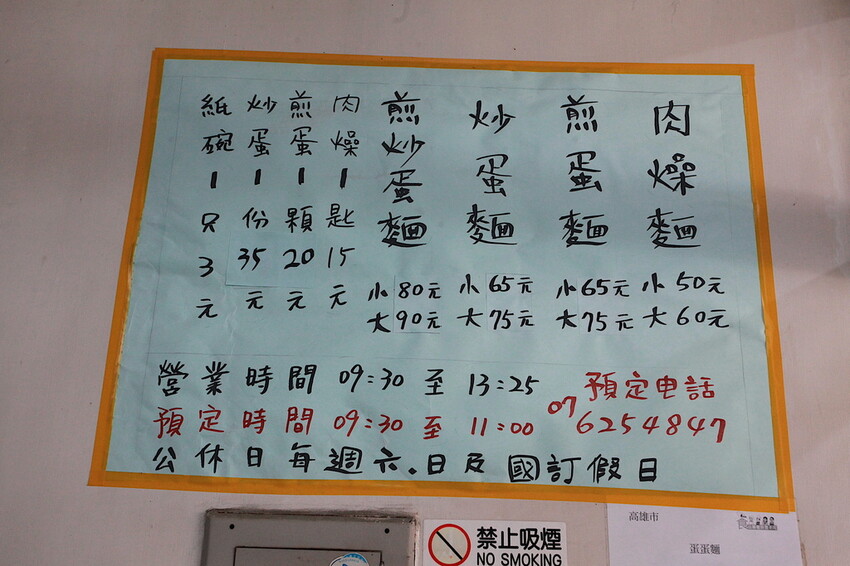 肉燥麵 小50元 大60元
煎蛋麵 小65元 大75元
炒蛋麵 小65元 大75元
煎炒蛋麵 小80元 大90元
肉燥1匙15元
煎蛋1顆20元
炒蛋1份35元
紙碗1只3元
營業時間 09:30至13:25
預定時間 09:30至11:00
預定电話
07 6254847
公休日每週六.日及國訂假日
禁止吸煙
NO SMOKING
高雄市
蛋蛋麵